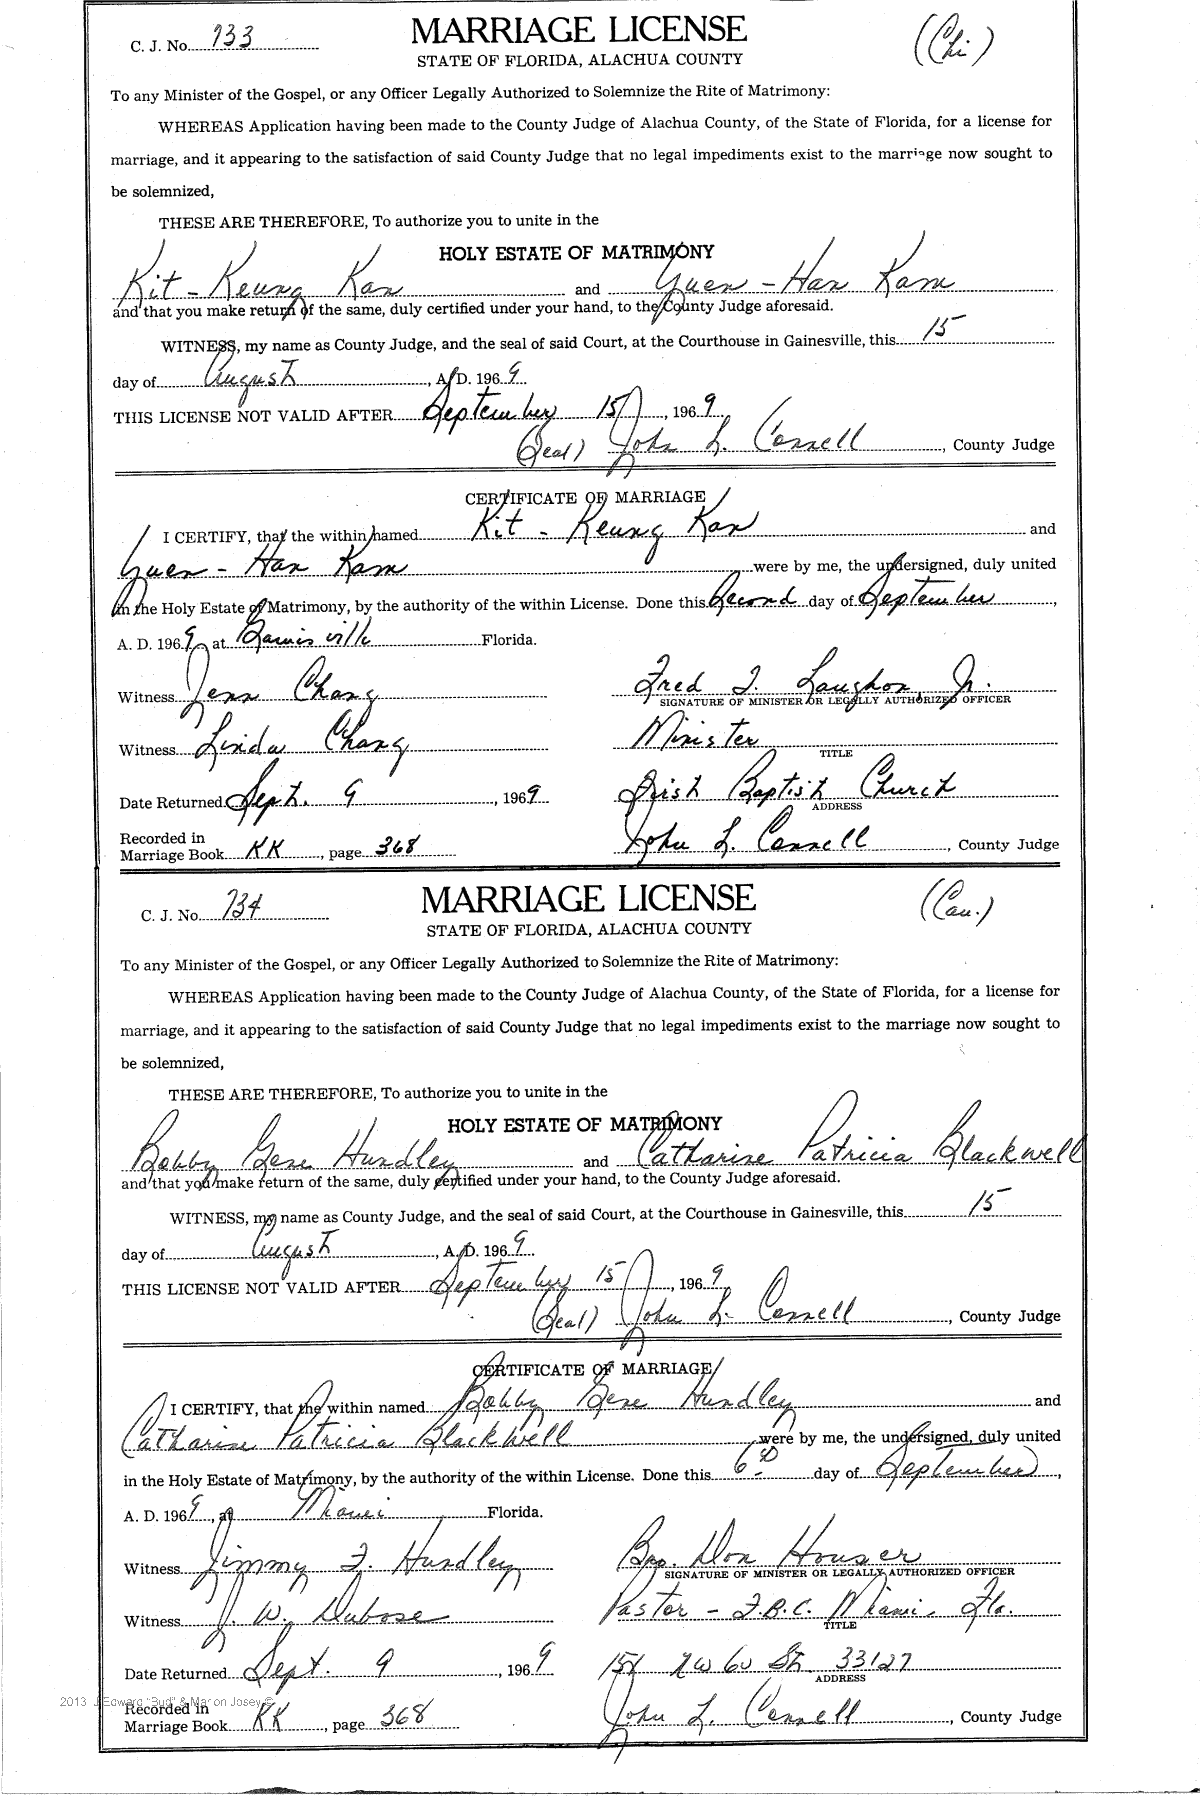 C. J. No. 733
MARRIAGE LICENSE
(Chi)
STATE OF FLORIDA, ALACHUA COUNTY
To any Minister of the Gospel, or any Officer Legally Authorized to Solemnize the Rite of Matrimony:
WHEREAS Application having been made to the County Judge of Alachua County, of the State of Florida, for a license for
marriage, and it appearing to the satisfaction of said County Judge that no legal impediments exist to the marriage now sought to
be solemnized,
THESE ARE THEREFORE, To authorize you to unite in the
HOLY ESTATE OF MATRIMONY
Kit - Keung Kan and Yuen - Han Kam
and that you make return of the same, duly certified under your hand, to the County Judge aforesaid.
WITNESS, my name as County Judge, and the seal of said Court, at the Courthouse in Gainesville, this 15
day of August, A. D. 1969
THIS LICENSE NOT VALID AFTER September 15, 1969
(Seal) John L. Connell, County Judge
CERTIFICATE OF MARRIAGE
I CERTIFY, that the within named Kit - Keung Kan and
Yuen - Han Kam were by me, the undersigned, duly united
in the Holy Estate of Matrimony, by the authority of the within License. Done this Second day of September,
A. D. 1969, at Gainesville Florida.
Witness Jenn Chang
Fred T. Laughon, Jr.
SIGNATURE OF MINISTER OR LEGALLY AUTHORIZED OFFICER
Witness Linda Chang
Minister
TITLE
Date Returned Sept. 9, 1969
First Baptist Church
ADDRESS
Recorded in
Marriage Book KK, page 368
John L. Connell, County Judge
C. J. No. 734
MARRIAGE LICENSE
(Cau.)
STATE OF FLORIDA, ALACHUA COUNTY
To any Minister of the Gospel, or any Officer Legally Authorized to Solemnize the Rite of Matrimony:
WHEREAS Application having been made to the County Judge of Alachua County, of the State of Florida, for a license for
marriage, and it appearing to the satisfaction of said County Judge that no legal impediments exist to the marriage now sought to
be solemnized,
THESE ARE THEREFORE, To authorize you to unite in the
HOLY ESTATE OF MATRIMONY
Bobby Gene Hundley and Catharine Patricia Blackwell
and that you make return of the same, duly certified under your hand, to the County Judge aforesaid.
WITNESS, my name as County Judge, and the seal of said Court, at the Courthouse in Gainesville, this 15
day of August, A. D. 1969
THIS LICENSE NOT VALID AFTER September 15, 1969
(Seal) John L. Connell, County Judge
CERTIFICATE OF MARRIAGE
I CERTIFY, that the within named Bobby Gene Hundley and
Catharine Patricia Blackwell were by me, the undersigned, duly united
in the Holy Estate of Matrimony, by the authority of the within License. Done this 6 day of September,
A. D. 1969, at Miami Florida.
Witness Jimmy F. Hundley
Bro. Don Houser
SIGNATURE OF MINISTER OR LEGALLY AUTHORIZED OFFICER
Witness J. W. Dubose
Pastor - F.B.C. Miami, Fla.
TITLE
Date Returned Sept. 9, 1969
151 NW 60 St. 33127
ADDRESS
2013 J Edward "Bud" & Marion Josey ©
Recorded in
Marriage Book KK, page 368
John L. Connell, County Judge